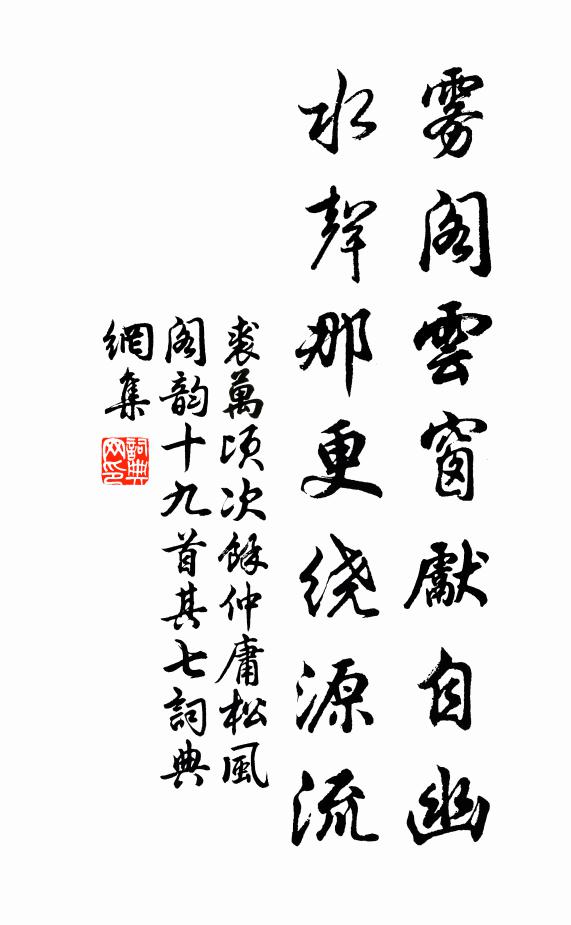 雾閣雲窗獻自幽
水聲那更绕源流
裘萬頃次餘仲庸松風
閣韵十九首其七詞典
網集
詞典
网印